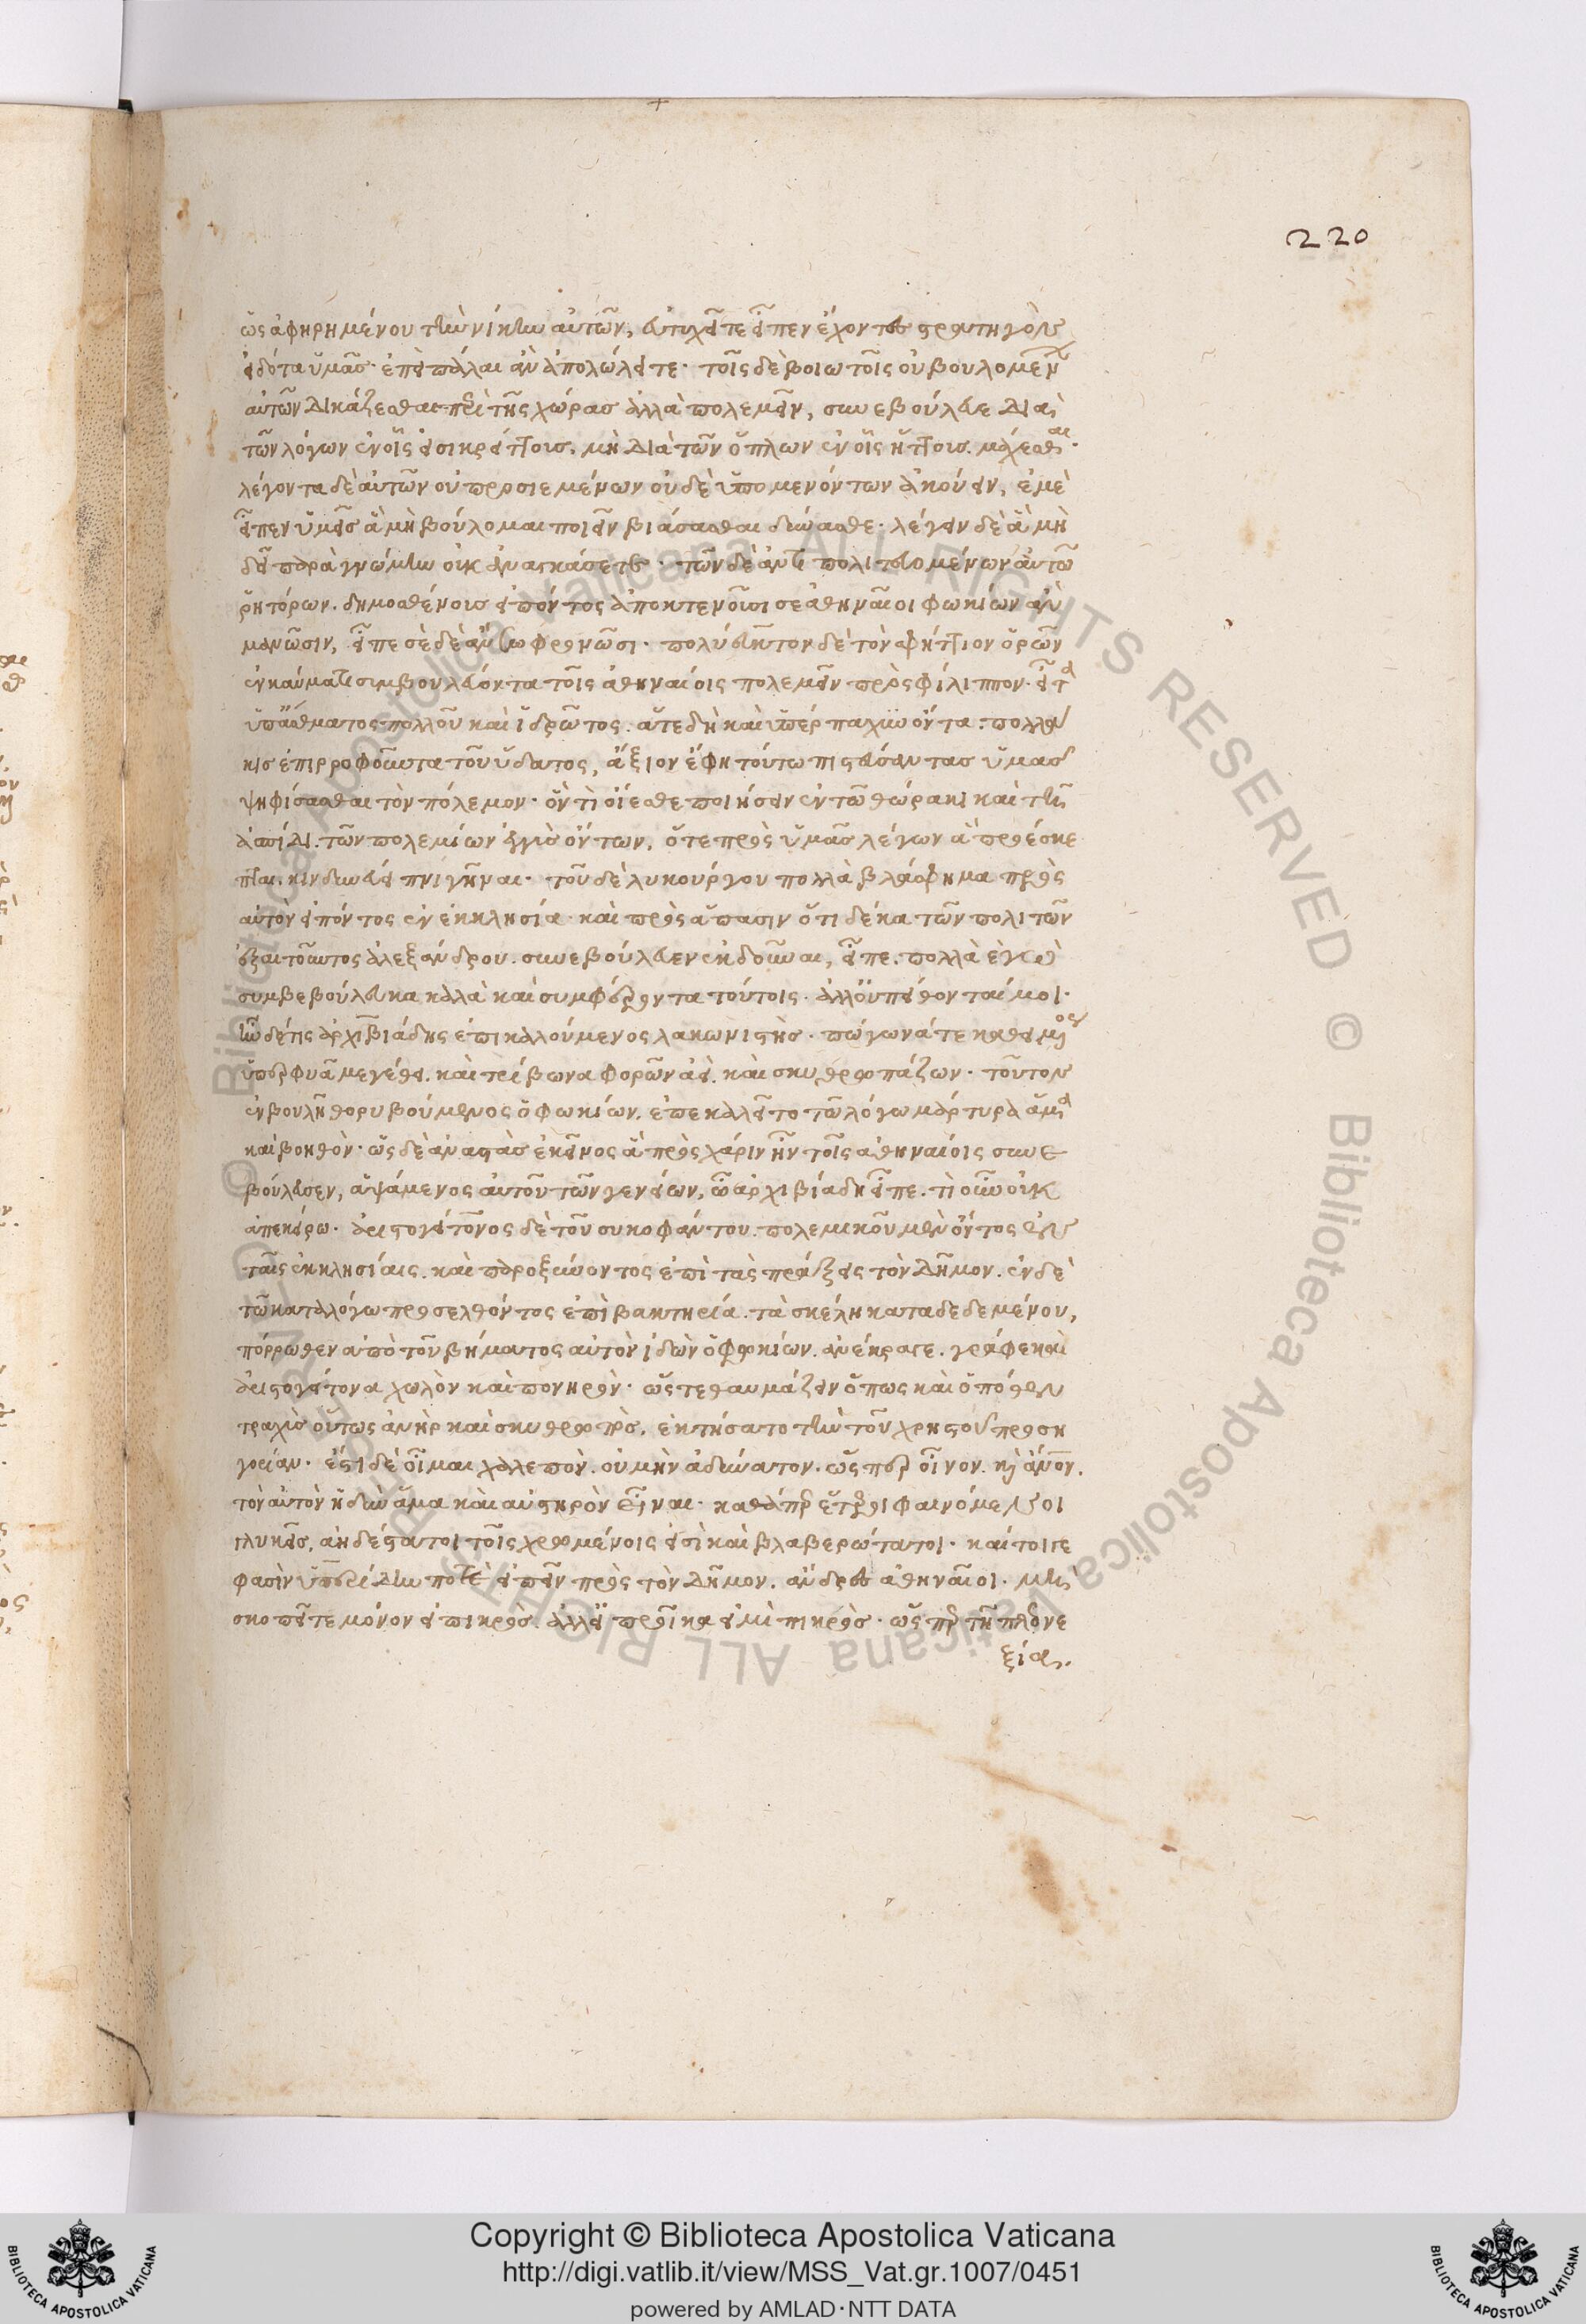 220
ὡς ἀφηρημένου τὴν νίκην αὐτῶν, εὐτυχεῖτε εἶπεν ἔχοντες στρατηγὸν
εἰδότα ὑμᾶς· ἐπεὶ πάλαι ἂν ἀπολώλειτε· τοῖς δὲ βοιωτοῖς οὐ βουλομένων
αὐτῶν δικάζεσθαι περὶ τῆς χώρας ἀλλὰ πολεμεῖν, συνεβούλευε διὰ
τῶν λόγων ἐν οἷς εἰσι κρείττους. μὴ διὰ τῶν ὅπλων ἐν οἷς ἥττους. μάχεσθαι·
λέγοντα δὲ αὐτῶν οὐ προσιεμένων οὐδὲ ὑπομενόντων ἀκούειν, ἐμὲ
εἶπεν ὑμεῖς ἃ μὴ βούλομαι ποιεῖν βιάσασθαι δύνασθε· λέγειν δὲ ἃ μὴ
δεῖ παρὰ γνώμην οὐκ ἀναγκάσετε· τῶν δὲ ἀντιπολιτευομένων αὐτῶ
ῥητόρων. δημοσθένους εἰπόντος ἀποκτενοῦσι σε ἀθηναῖοι φωκίων ἂν
μανῶσιν, εἶπε σὲ δὲ ἂν σωφρονῶσι· πολύευκτον δὲ τὸν σφήττιον ὁρῶν
ἐν καύματι συμβουλεύοντα τοῖς ἀθηναίοις πολεμεῖν πρὸς φίλιππον. εἶτα
ὑπ' ἄσθματος πολλοῦ καὶ ἱδρῶτος. ἅτε δὴ καὶ ὑπέρπαχυν ὄντα. πολλά
κις ἐπιρροφοῦντα τοῦ ὕδατος, ἄξιον ἔφη τούτω πιστεύσαντας ὑμᾶς
ψηφίσασθαι τὸν πόλεμον· ὃν τί οἴεσθε ποιήσειν ἐν τῶ θώρακι καὶ τῆ
ἀσπίδι. τῶν πολεμίων ἐγγὺς ὄντων, ὅτε πρὸς ὑμᾶς λέγων ἃ προέσκε
πται. κινδυνεύει πνιγῆναι· τοῦ δὲ λυκούργου πολλὰ βλάσφημα πρὸς
αὐτὸν εἰπόντος ἐν ἐκκλησία· καὶ πρὸς ἅπασιν ὅτι δέκα τῶν πολιτῶν
ἐξαιτοῦντος ἀλεξάνδρου. συνεβούλευεν ἐκδοῦναι, εἶπε. πολλὰ ἐγὼ
συμβεβούλευκα καλὰ καὶ συμφέροντα τούτοις. ἀλλ' οὐ πείθονταί μοι·
ἦν δέ τις ἀρχιβιάδης ἐπικαλούμενος λακωνιστὴς· πώγωνά τε καθειμένος
ὑπερφυᾶ μεγέθει. καὶ τρίβωνα φορῶν ἀεὶ. καὶ σκυθρωπάζων· τοῦτον
ἐν βουλῆ θορυβούμενος ὁ φωκίων. ἐπεκαλεῖτο τῶ λόγω μάρτυρα ἅμα
καὶ βοηθὸν· ὡς δὲ ἀναστὰς ἐκεῖνος ἃ πρὸς χάριν ἦν τοῖς ἀθηναίοις συνε
βούλευσεν, ἁψάμενος αὐτοῦ τῶν γενείων, ὦ ἀρχιβιάδη εἶπε. τί οὖν οὐκ
ἀπεκείρω· ἀριστογείτονος δὲ τοῦ συκοφάντου. πολεμικοῦ μὲν ὄντος ἐν
ταῖς ἐκκλησίαις. καὶ παροξύνοντος ἐπὶ τὰς πράξεις τὸν δῆμον. ἐν δὲ
τῶ καταλόγω προσελθόντος ἐπὶ βακτηρία. τὰ σκέλη καταδεδεμένου,
πόρρωθεν ἀπὸ τοῦ βήματος αὐτὸν ἰδὼν ὁ φωκίων. ἀνέκραγε. γράφε καὶ
ἀριστογείτονα χωλὸν καὶ πονηρὸν· ὥστε θαυμάζειν ὅπως καὶ ὁπόθεν
τραχὺς οὕτως ἀνὴρ καὶ σκυθρωπὸς. ἐκτήσατο τὴν τοῦ χρηστοῦ προση
γορίαν· ἔστι δὲ οἶμαι χαλεπὸν. οὐ μὴν ἀδύνατον. ὥσπερ οἶνον. καὶ ἄνθρωπον.
τὸν αὐτὸν ἡδὺν ἅμα καὶ αὐστηρὸν εἶναι· καθάπερ ἕτεροι φαινόμενοι
γλυκεῖς, ἀηδέστατοι τοῖς χρωμένοις εἰσὶ καὶ βλαβερώτατοι· καίτοι γε
φασὶν ὑπερείδην ποτὲ εἰπεῖν πρὸς τὸν δῆμον. ἄνδρες ἀθηναῖοι. μὴ
σκοπεῖτε μόνον εἰ πικρὸς. ἀλλ' εἰ προῖκα εἰμὶ πικρὸς· ὡς περ τῆ πλεονε
ξία.
Copyright © Biblioteca Apostolica Vaticana
http://digi.vatlib.it/view/MSS_Vat.gr.1007/0451
powered by AMLAD·NTT DATA
BIBLIOTECA APOSTOLICA VATICANA
BIBLIOTECA APOSTOLICA VATICANA
© Biblioteca Apostolica Vaticana ALL RIGHTS RESERVED © Biblioteca Apostolica Vaticana ALL RIGHTS RESERVED